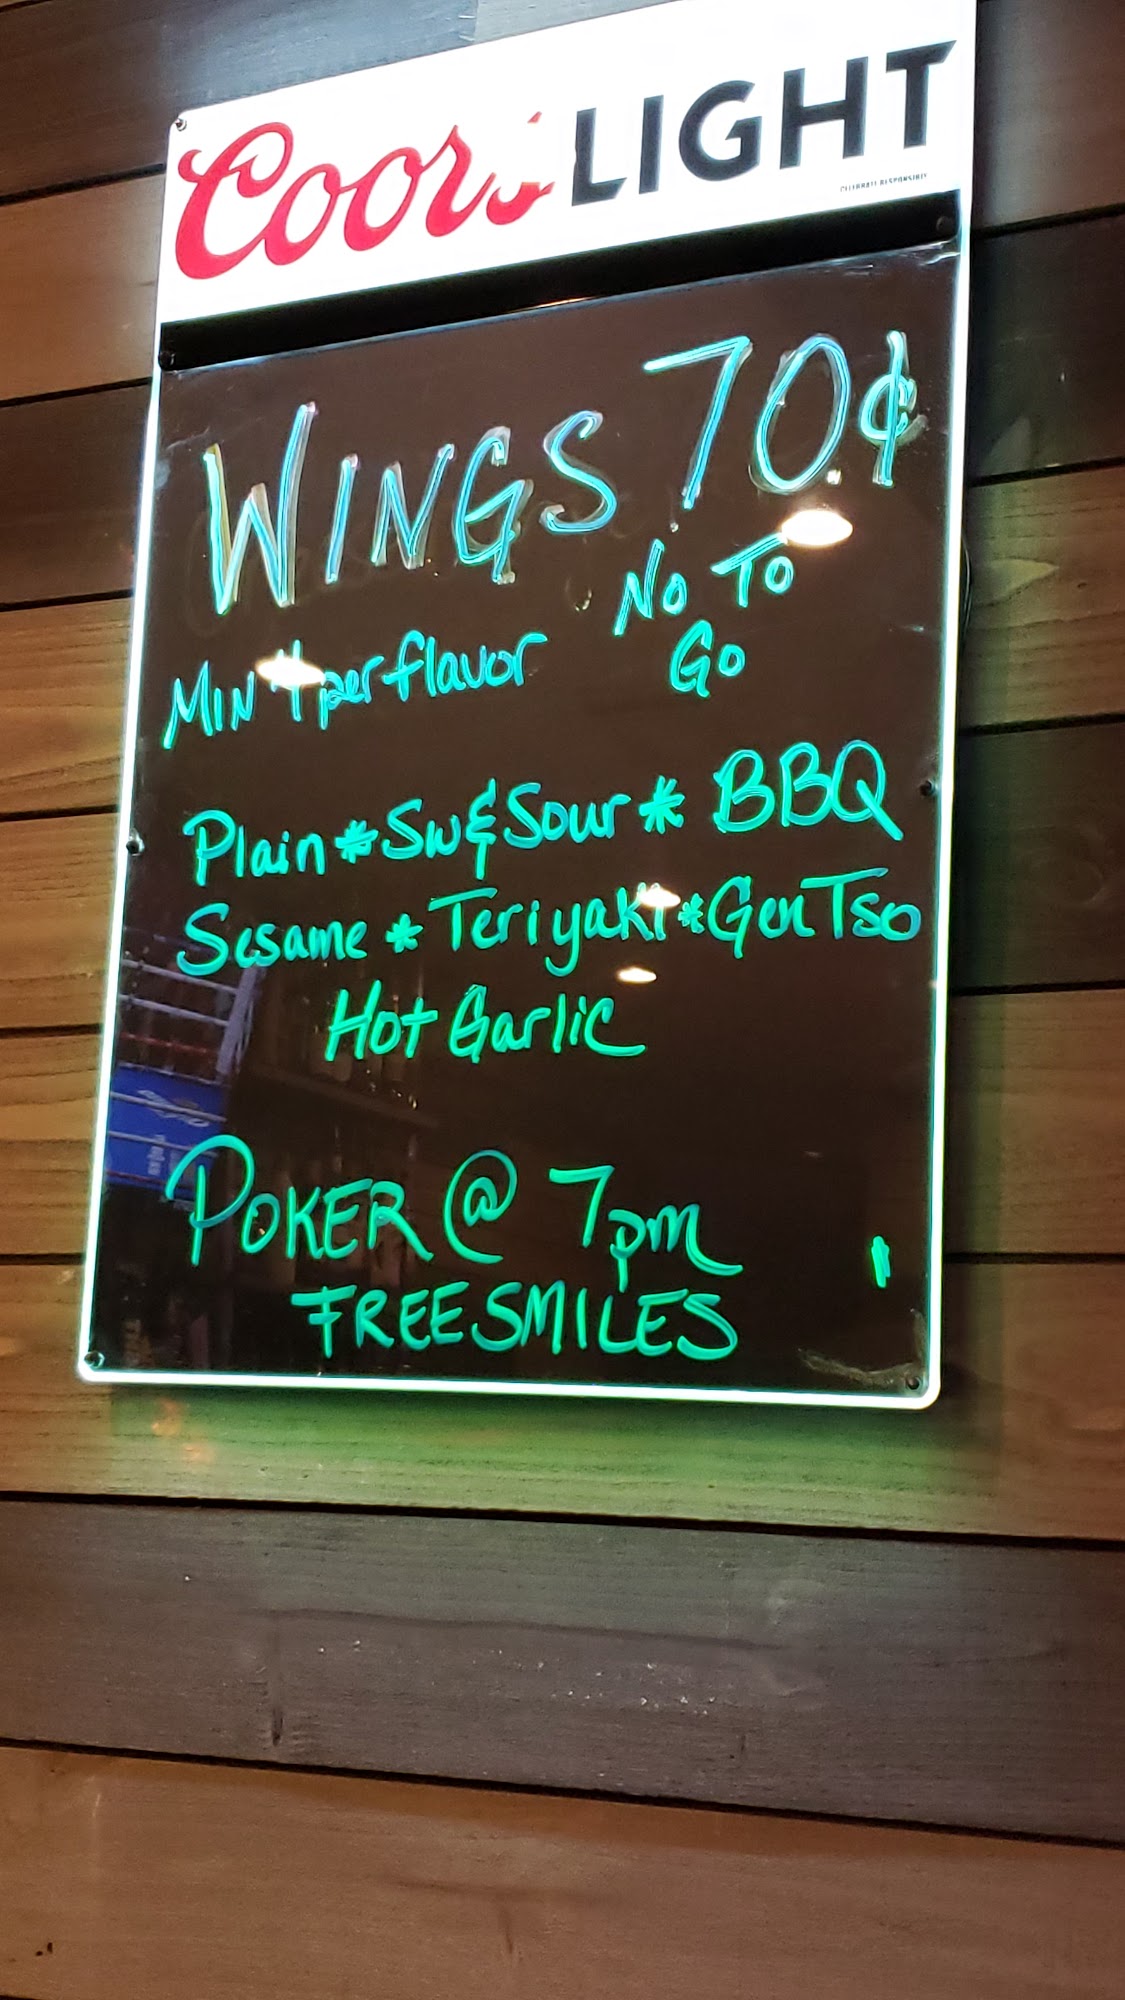 Coors LIGHT
CELEBRATE RESPONSIBLY
WINGS 70¢
No To
Go
MIN 4 per flavor
Plain * Sw & Sour * BBQ
Sesame * Teriyaki * Gen Tso
Hot Garlic
POKER @ 7pm
FREE SMILES